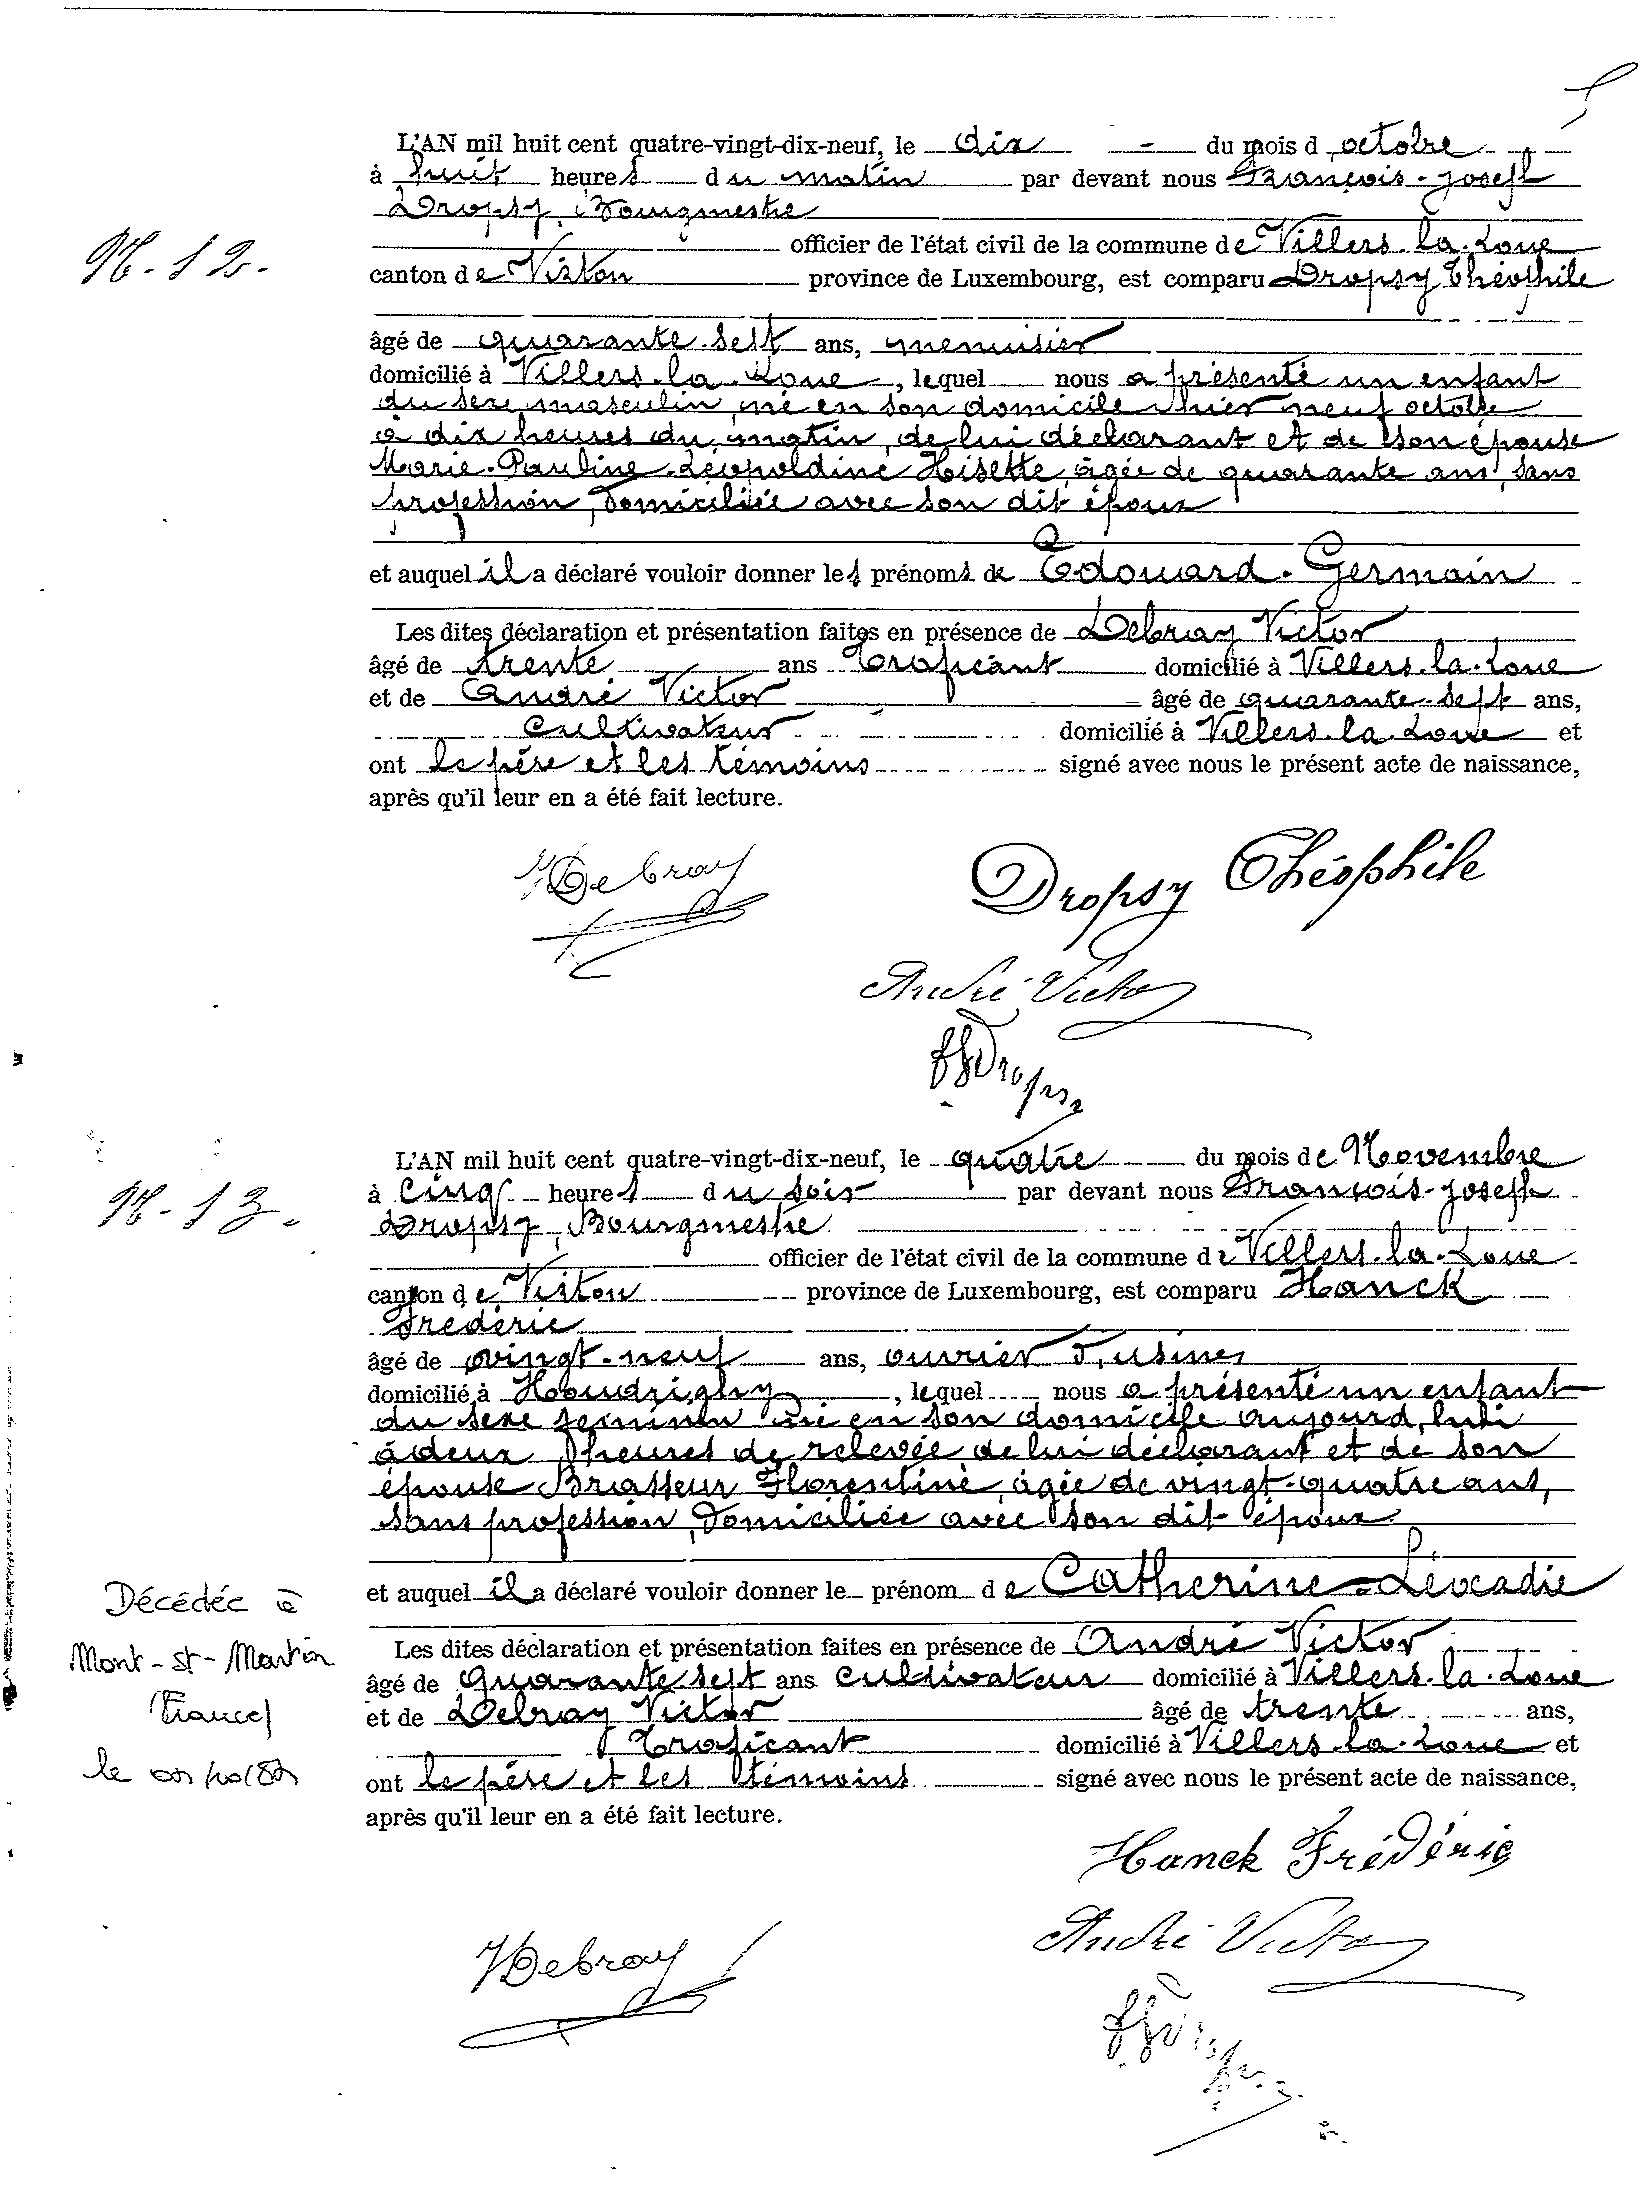 5
L'AN mil huit cent quatre-vingt-dix-neuf, le dix du mois d'octobre
à huit heures du matin par devant nous François-Joseph
Dropsy, Bourgmestre
N. 12.
officier de l'état civil de la commune de Villers-la-Loue
canton de Virton province de Luxembourg, est comparu Dropsy Théophile
âgé de quarante-sept ans, menuisier
domicilié à Villers-la-Loue, lequel nous a présenté un enfant
du sexe masculin, né en son domicile hier neuf octobre
à dix heures du matin, de lui déclarant et de son épouse
Marie-Pauline-Léopoldine Hisette, âgée de quarante ans, sans
profession, domiciliée avec son dit époux
et auquel il a déclaré vouloir donner les prénoms de Edouard-Germain
Les dites déclaration et présentation faites en présence de Debray Victor
âgé de trente ans Traficant domicilié à Villers-la-Loue
et de André Victor âgé de quarante-sept ans,
cultivateur domicilié à Villers-la-Loue et
ont le père et les témoins signé avec nous le présent acte de naissance,
après qu'il leur en a été fait lecture.
VDebray
Dropsy Théophile
André Victor
FJDropsy
L'AN mil huit cent quatre-vingt-dix-neuf, le quatre du mois de Novembre
à cinq heures du soir par devant nous François-Joseph
N. 13.
Dropsy, Bourgmestre
officier de l'état civil de la commune de Villers-la-Loue
canton de Virton province de Luxembourg, est comparu Hanck
Frédéric
âgé de vingt-neuf ans, ouvrier d'usines
domicilié à Houdrigny, lequel nous a présenté un enfant
du sexe féminin né en son domicile aujourd'hui
à deux heures de relevée, de lui déclarant et de son
épouse Brasseur Florentine, âgée de vingt-quatre ans,
sans profession, domiciliée avec son dit époux
et auquel il a déclaré vouloir donner le prénom de Catherine-Léocadie
Décédée à
Mont-St-Martin
(France)
le
Les dites déclaration et présentation faites en présence de André Victor
âgé de quarante sept ans cultivateur domicilié à Villers-la-Loue
et de Debray Victor âgé de trente ans,
Traficant domicilié à Villers-la-Loue et
ont le père et les témoins signé avec nous le présent acte de naissance,
après qu'il leur en a été fait lecture.
Hanck Frédéric
André Victor
VDebray
FJDropsy